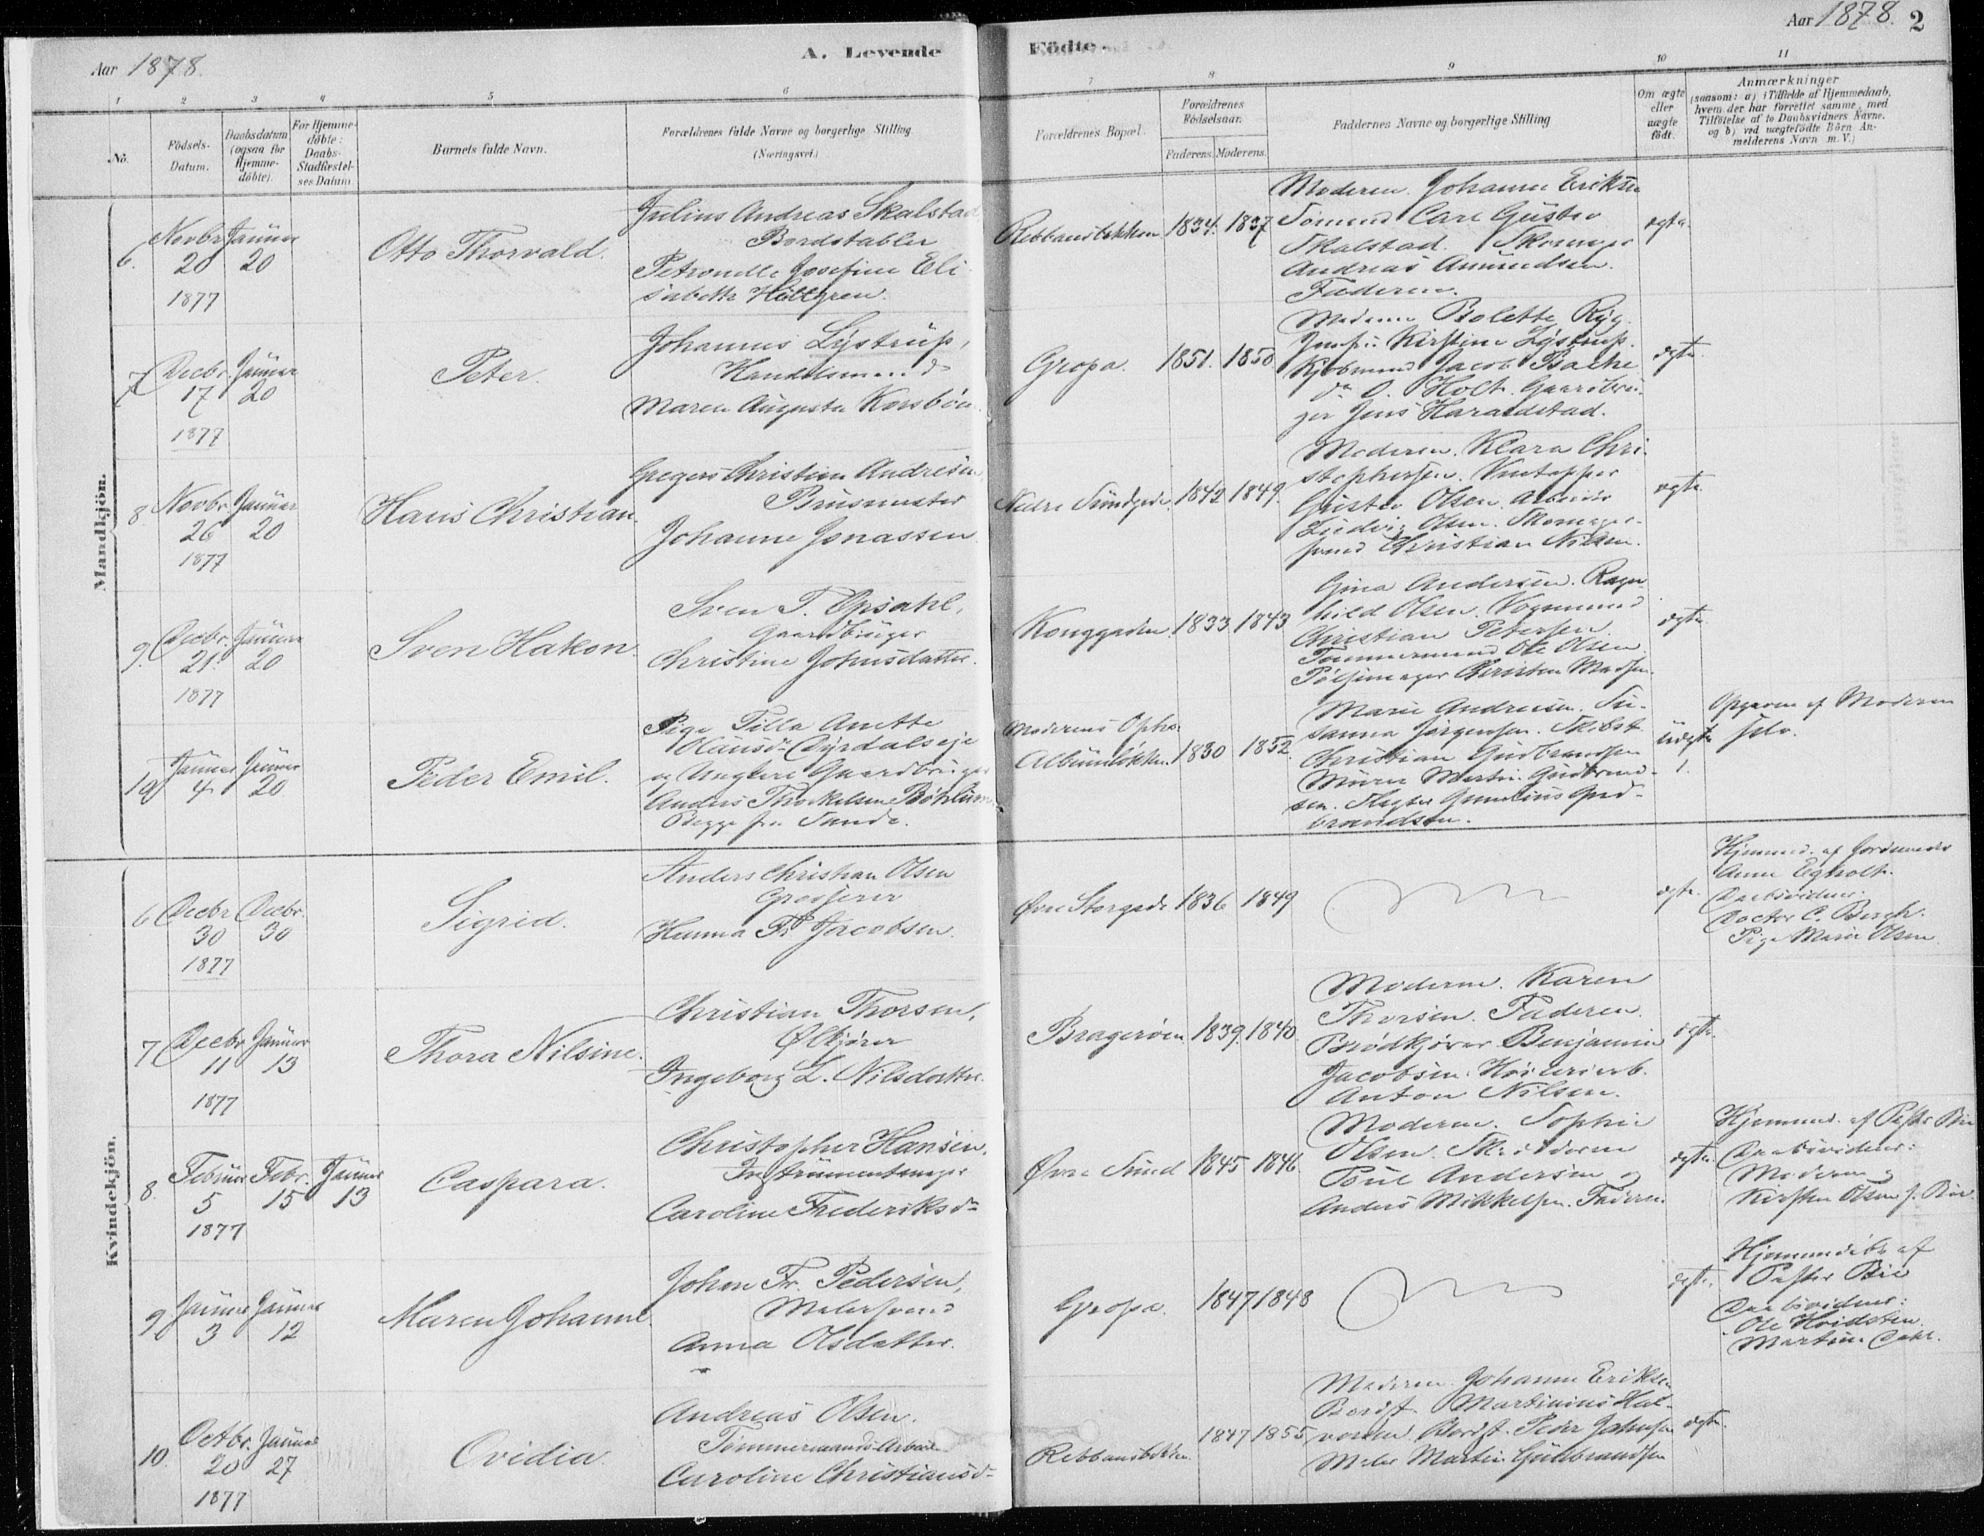 Aar 1878.
A. Levende
Födte.
Aar 1878. 2
1 2 3 4 5 6 7 8 9 10 11
No.
Födsels-
Datum.
Daabsdatum
(ogsaa for
Hjemme-
døbte).
For Hjemme-
døbte:
Daabs-
Stadfæstel-
ses Datum.
Barnets fulde Navn.
Forældrenes fulde Navne og borgerlige Stilling
(Næringsvei.)
Forældrenes Bopæl.
Forældrenes
Födselsaar.
Faderens. Moderens.
Faddernes Navne og borgerlige Stilling
Om ægte
eller
uægte
født.
Anmærkninger
(saasom: a) i Tilfælde af Hjemmedaab,
hvem der har forrettet samme, med
Tilføielse af to Daabsvidners Navne.
og b) ved uægtefødte Börn An-
melderens Navn m. V.)
Mandkjön.
6.
Novbr
20
1877
Januar
20
Otto Thorvald.
Julius Andreas Skalstad
Bordstabler
Petronelle Josefine Eli
sabeth
Rebbansløkken
1834. 1837
Moderen. Johanne Eriksen
Carl Gustav
Skalstad. Skomager
Andreas Amundsen.
Faderen.
ægte
7
Decbr.
17
1877
Januar
20
Peter.
Johannes Lystrup,
Handelsmand
Maren Augusta
Gropa.
1851. 1850
Moderen Bolette Ryg.
Kirstine Lystrup.
Kjøbmand Jacob
O. Holt. Gaardbru-
ger Jens Haraldstad.
ægte
8
Novbr.
26
1877
Januar
20
Hans Christian.
Gregers Christian Andresen
Johanne Jonassen
Nedre Sundgade
1842 1849.
Moderen. Klara Chri-
stophersen.
Gustav Olsen.
Ludvig Olsen. Skomager-
svend Christian Nilsen.
ægte
9.
Decbr.
21.
1877
Januar
20
Sven Hakon.
Sven T. Opsahl,
Gaardbruger
Christine Johnsdatter.
Konggaden
1833 1843
Gina Andersen. Ragn-
hild Olsen. Vognmand
Christian Petersen
Tømmermand Ole Olsen
Pølsemager Christen Madsen.
ægte
10
Januar
4
Januar
20
Peder Emil.
Pige Tilla Anette
Hansd. Dyrdalseje
og Ungkarl Gaardbruger
Anders Thorkelsen
Begge fra Sande.
Moderens Opho.
Albumløkken
1830 1852.
Marie Andresen. Su-
sanna Jørgensen.
Christian Gudbrandsen
Murer Martin Gudbrand-
sen. Gunelius Gud-
brandsen.
uægte
1.
Opgaven af Moderen
selv.
Kvindekjön.
6
Decbr
30
1877
Decbr.
30
Sigrid.
Anders Christian Olsen
Grosserer
Hanna Jacobsen.
Øvre Storgade
1836 1849
ægte.
Hjemmed. af Jordemoder
Anne Egholt.
Daabsvidner:
Doctor C. Bugh.
Pige Marie Olsen
7
Decbr
11
1877
Januar
13
Thora Nilsine.
Christian Thorsen,
Ølkjører
Ingeborg L. Nilsdatter.
Bragerøen
1839. 1840.
Moderen. Karen
Thorsen. Faderen.
Brødkjører Benjamin
Jacobsen.
Anton Nilsen.
ægte
8.
Februar
5
1877
Febr.
15
Januar
13
Caspara.
Christopher Hansen,
Instrumentmager
Caroline Frederiksd
Øvre Sund
1845 1846.
Moderen. Sophie
Olsen.
Poul Andersen og
Anders Mikkelsen. Faderen.
ægte.
Hjemmed. af Pastor Bie
Daabsvidner:
Moderen og
Kirsten Olsen
9
Januar
3
Januar
12
Maren Johanne
Johan Fr. Pedersen,
Malersvend
Anna Olsdatter.
Gropa.
1847 1848
ægte.
Hjemmedøbt af
Pastor Bie
Daabsvidner:
Ole Hvidsten.
10.
Octbr.
20
1877
Januar
27
Ovidia.
Andreas Olsen.
Tømmermands Arbeid.
Caroline Christiansd
Rebbansløkken.
1847 1855
Moderen. Johanne Eriksen
Bordst. Martinius Hal-
vorsen Bordst. Peder Johnsen
Maler Martin Gulbrandsen
ægte